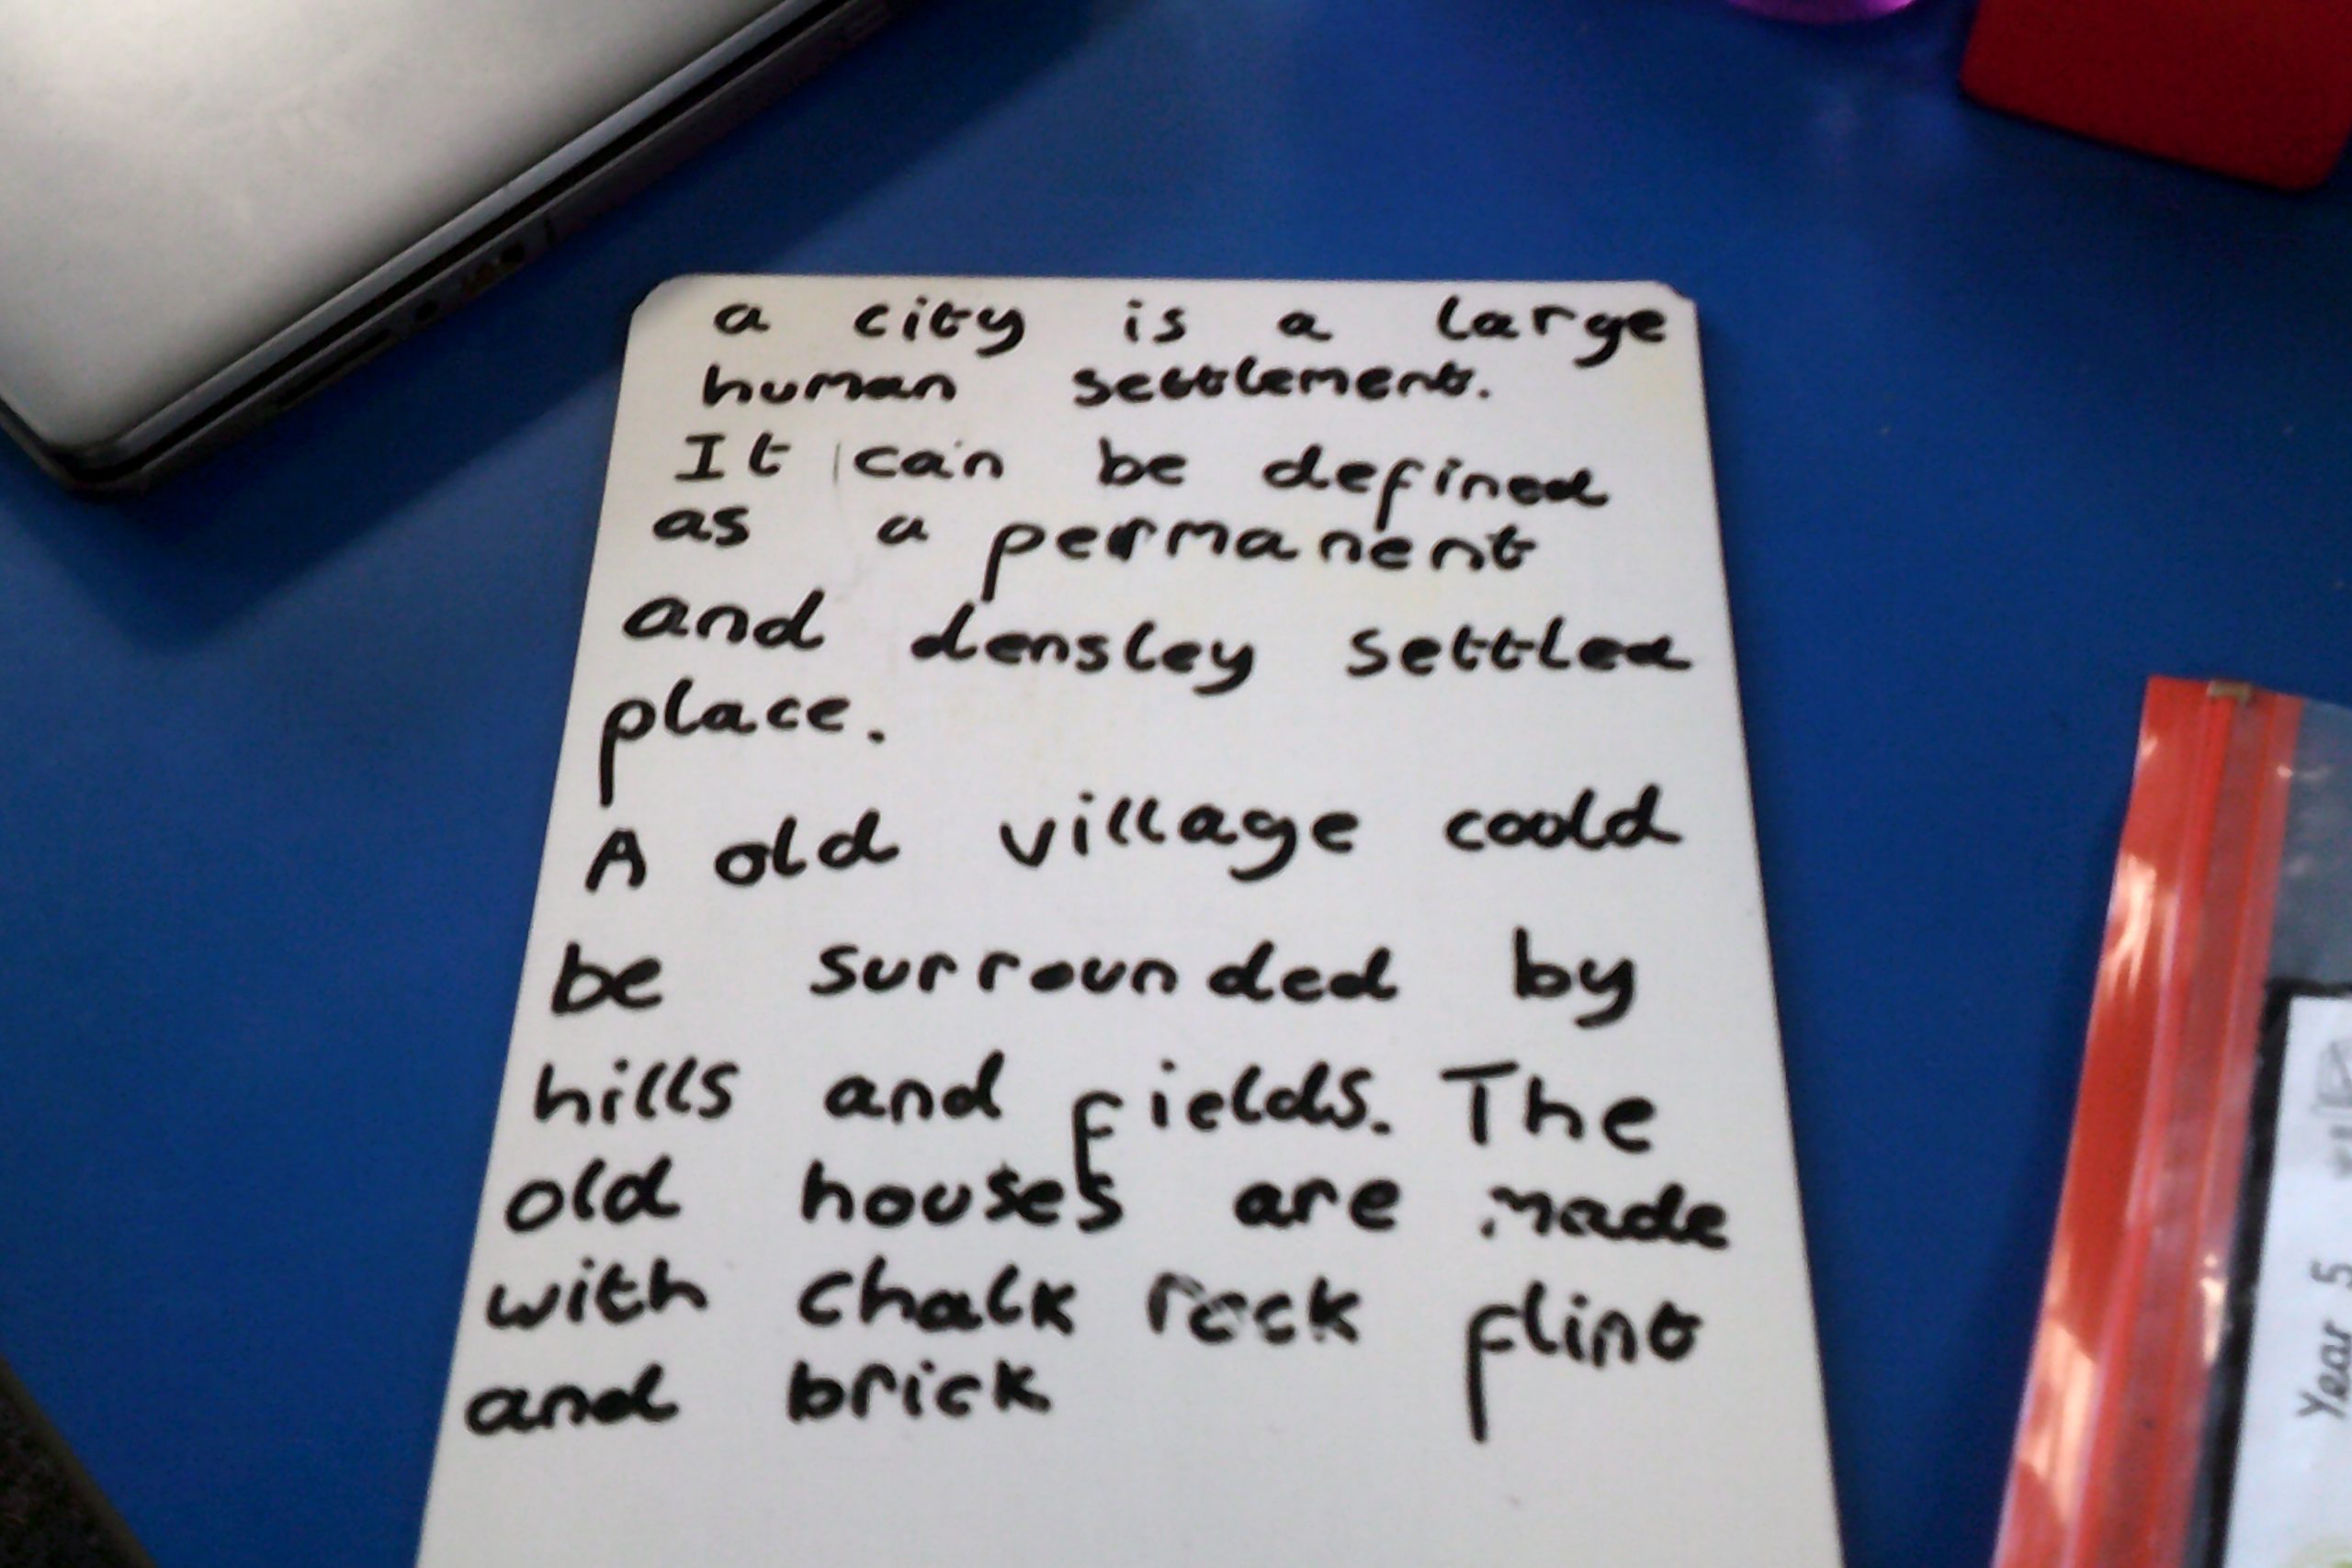 a city is a large
human settlement.
It can be defined
as a permanent
and densley settled
place.
A old village coold
be surrounded by
hills and fields. The
old houses are made
with chalk rock flint
and brick
Year 5